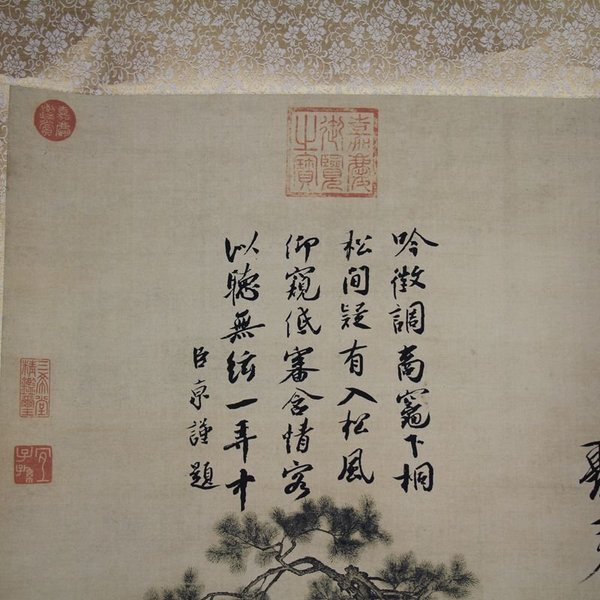 嘉慶御覽之寶
吟徵調商竈下桐
松間疑有入松風
仰窺低審含情客
似聽無絃一弄中
臣京謹題
嘉慶鑑賞
三希堂精鑑璽
宜子孫